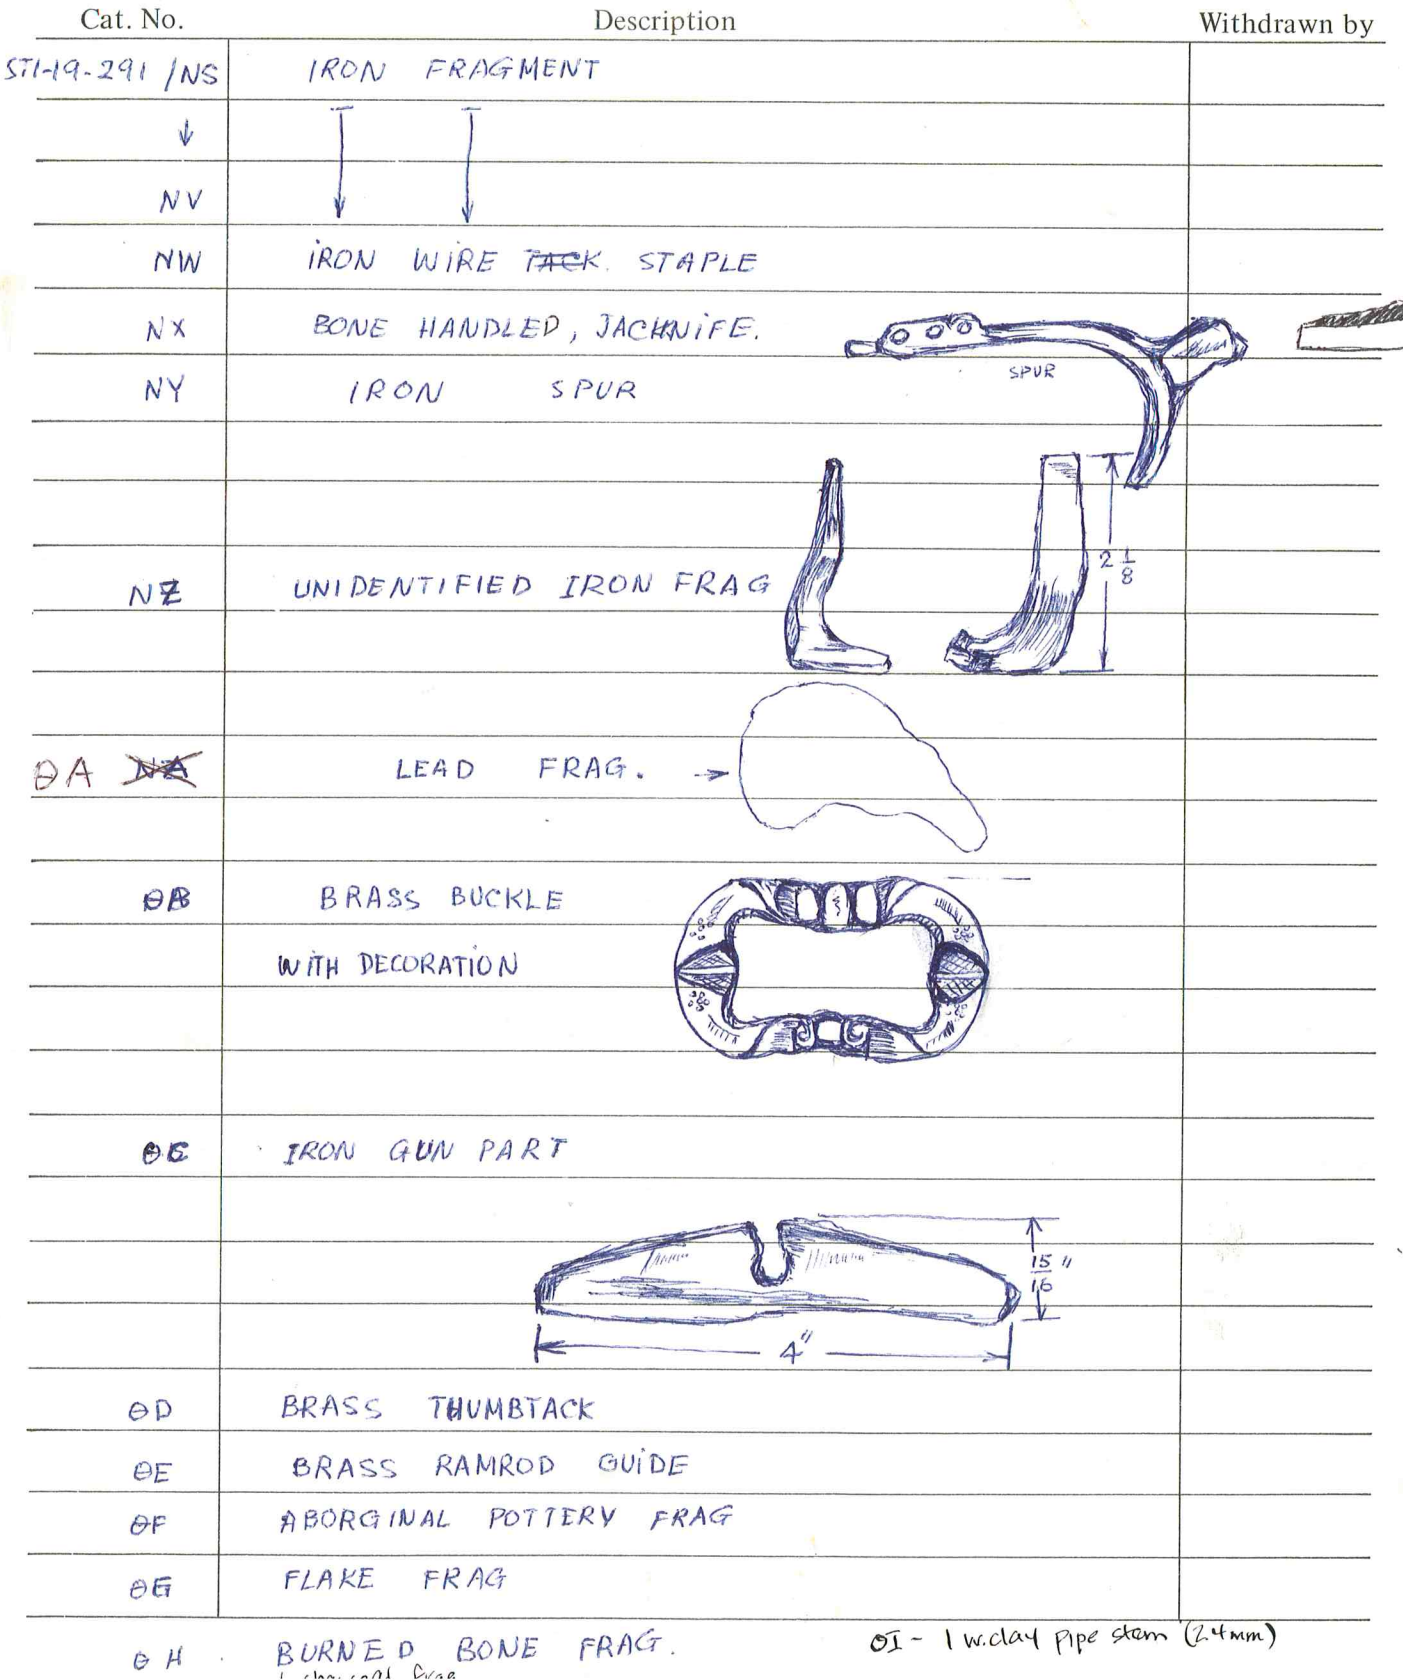 Cat. No. Description Withdrawn by
STI-19-291 /NS IRON FRAGMENT
↓
NV
NW IRON WIRE TACK STAPLE
NX BONE HANDLED, JACKNIFE.
SPUR
NY IRON SPUR
2 1/8
NZ UNIDENTIFIED IRON FRAG
ΘA NA LEAD FRAG. →
ΘB BRASS BUCKLE
WITH DECORATION
ΘC IRON GUN PART
15/16 "
4"
ΘD BRASS THUMBTACK
ΘE BRASS RAMROD GUIDE
ΘF ABORGINAL POTTERY FRAG
ΘG FLAKE FRAG
ΘH BURNED BONE FRAG. ΘI - 1 w.clay pipe stem (2.4mm)
1 charcoal frag